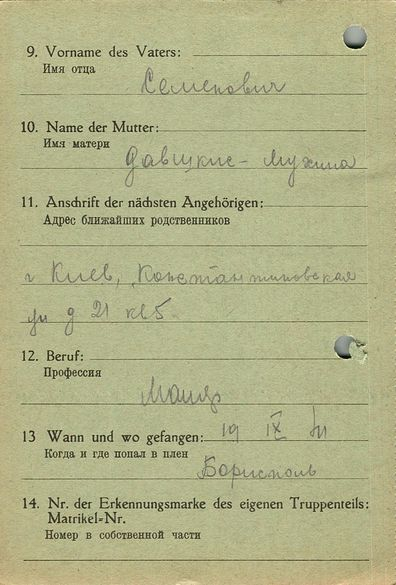 9. Vorname des Vaters:
Имя отца
Семенович
10. Name der Mutter:
Имя матери
Мухина
11. Anschrift der nächsten Angehörigen:
Адрес ближайших родственников
г Киев, Константиновская
ул д 21 кв 5
12. Beruf:
Профессия
13 Wann und wo gefangen: 19 IX 41
Когда и где попал в плен
Борисполь
14. Nr. der Erkennungsmarke des eigenen Truppenteils:
Matrikel-Nr.
Номер в собственной части